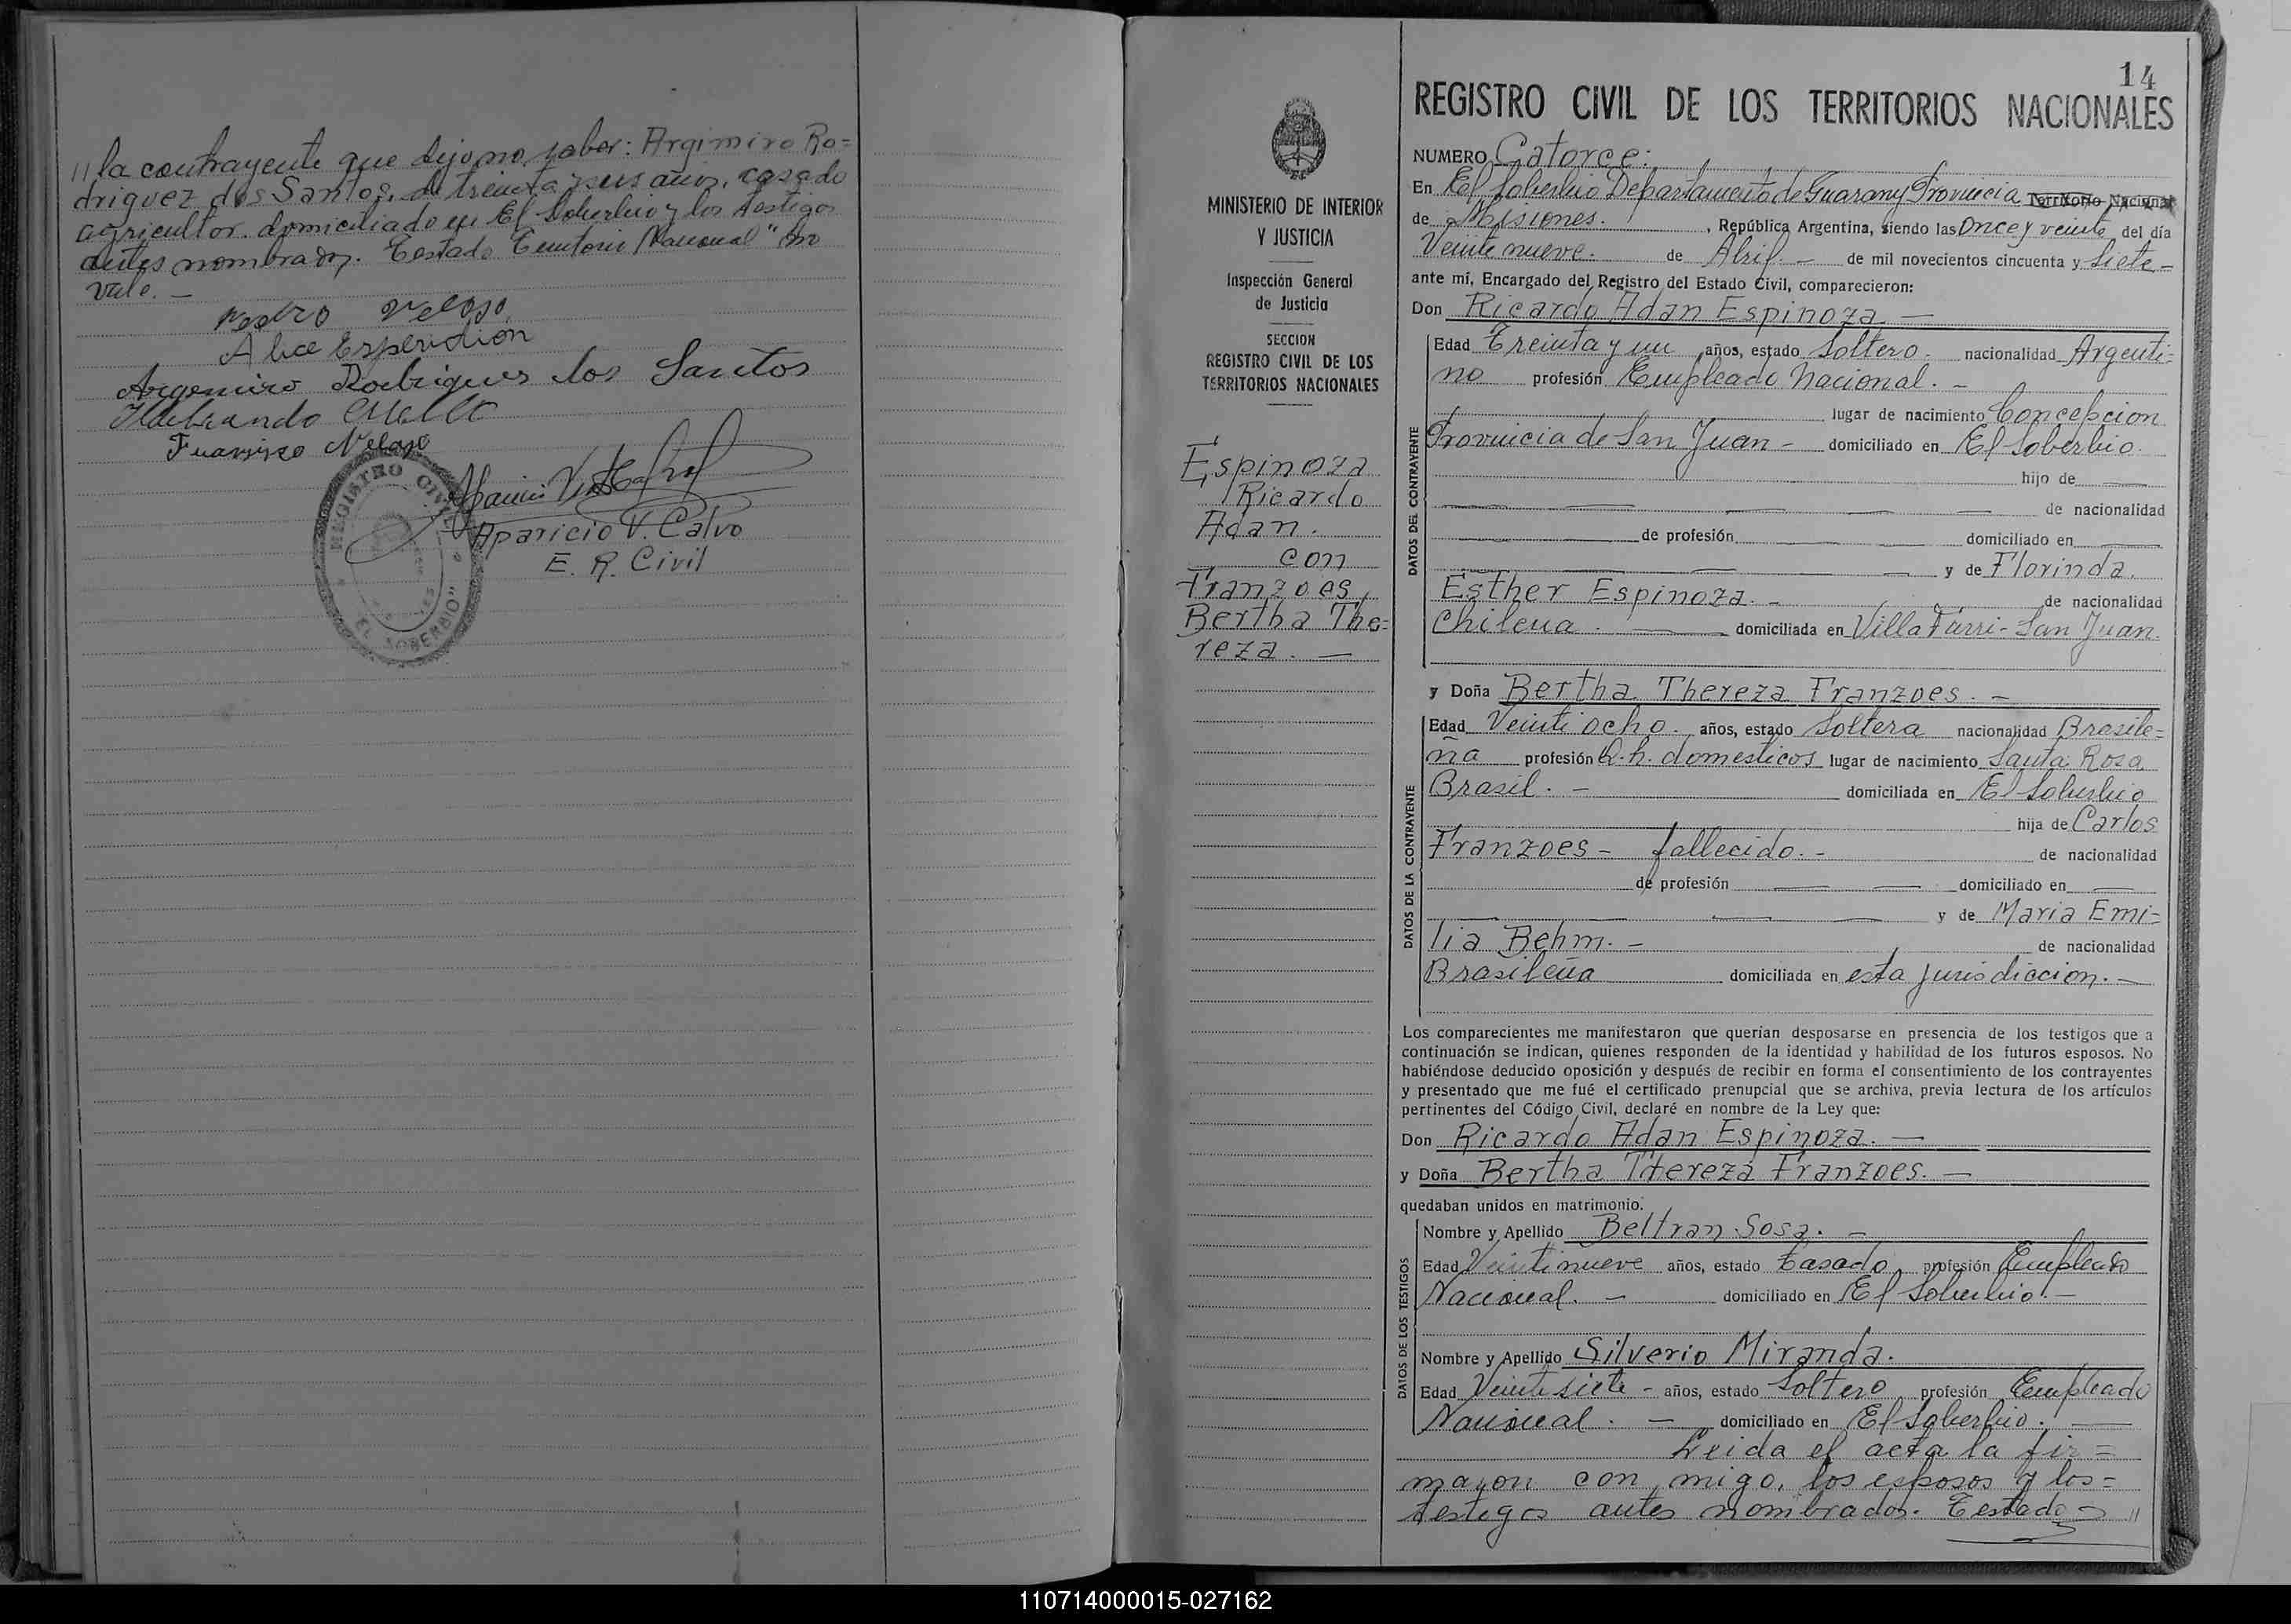 // la contrayente que dijo no saber: Argimiro Ro=
driguez dos Santos, de treinta y seis años, casado
agricultor. domiciliado en El Soberbio y los testigos
antes nombrados. Testado Territorio Nacional" no
vale. —
Pedro Veloso
Alice Esperidion
Argemiro Rodrigues dos Santos
Ildebrando Mello
Francisco Veloso
REGISTRO CIVIL
"EL SOBERBIO"
Aparicio V. Calvo
E. R. Civil
14
MINISTERIO DE INTERIOR
Y JUSTICIA
Inspección General
de Justicia
SECCION
REGISTRO CIVIL DE LOS
TERRITORIOS NACIONALES
Espinoza
Ricardo
Adan.
con
Franzoes,
Bertha The=
reza. —
REGISTRO CIVIL DE LOS TERRITORIOS NACIONALES
NUMERO Catorce:
En El Soberbio Departamento de Guarany Provincia Territorio Nacional
de Misiones. , República Argentina, siendo las once y veinte del día
Veinte nueve. de Abril. — de mil novecientos cincuenta y siete =
ante mí, Encargado del Registro del Estado Civil, comparecieron:
Don Ricardo Adan Espinoza —
DATOS DEL CONTRAYENTE
Edad Treinta y un años, estado Soltero. nacionalidad Argenti=
no profesión Empleado Nacional. —
lugar de nacimiento Concepcion
Provincia de San Juan — domiciliado en El Soberbio.
hijo de —
— — — — de nacionalidad
— de profesión — — domiciliado en —
— — — y de Florinda
Esther Espinoza. — de nacionalidad
Chilena. — domiciliada en Villa Farri - San Juan.
y Doña Bertha Thereza Franzoes. —
DATOS DE LA CONTRAYENTE
Edad Veinte ocho. años, estado Soltera nacionalidad Brasile=
ña profesión Q.h. domesticos lugar de nacimiento Santa Rosa
Brasil. — domiciliada en El Soberbio
hija de Carlos
Franzoes - fallecido. - de nacionalidad
de profesión — — domiciliado en —
— — — y de Maria Emi=
lia Behm. — de nacionalidad
Brasileña domiciliada en esta jurisdiccion. —
Los comparecientes me manifestaron que querían desposarse en presencia de los testigos que a
continuación se indican, quienes responden de la identidad y habilidad de los futuros esposos. No
habiéndose deducido oposición y después de recibir en forma el consentimiento de los contrayentes
y presentado que me fué el certificado prenupcial que se archiva, previa lectura de los artículos
pertinentes del Código Civil, declaré en nombre de la Ley que:
Don Ricardo Adan Espinoza. —
y Doña Bertha Thereza Franzoes. —
quedaban unidos en matrimonio.
DATOS DE LOS TESTIGOS
Nombre y Apellido Beltran Sosa. —
Edad Veintinueve años, estado Casado profesión Empleado
Nacional. — domiciliado en El Soberbio. —
Nombre y Apellido Silverio Miranda.
Edad Veinte siete - años, estado Soltero profesión Empleado
Nacional. — domiciliado en El Soberbio. —
Leida el acta la fir=
mayon con migo, los esposos y los=
testigos antes nombrados. Testado = //
110714000015-027162